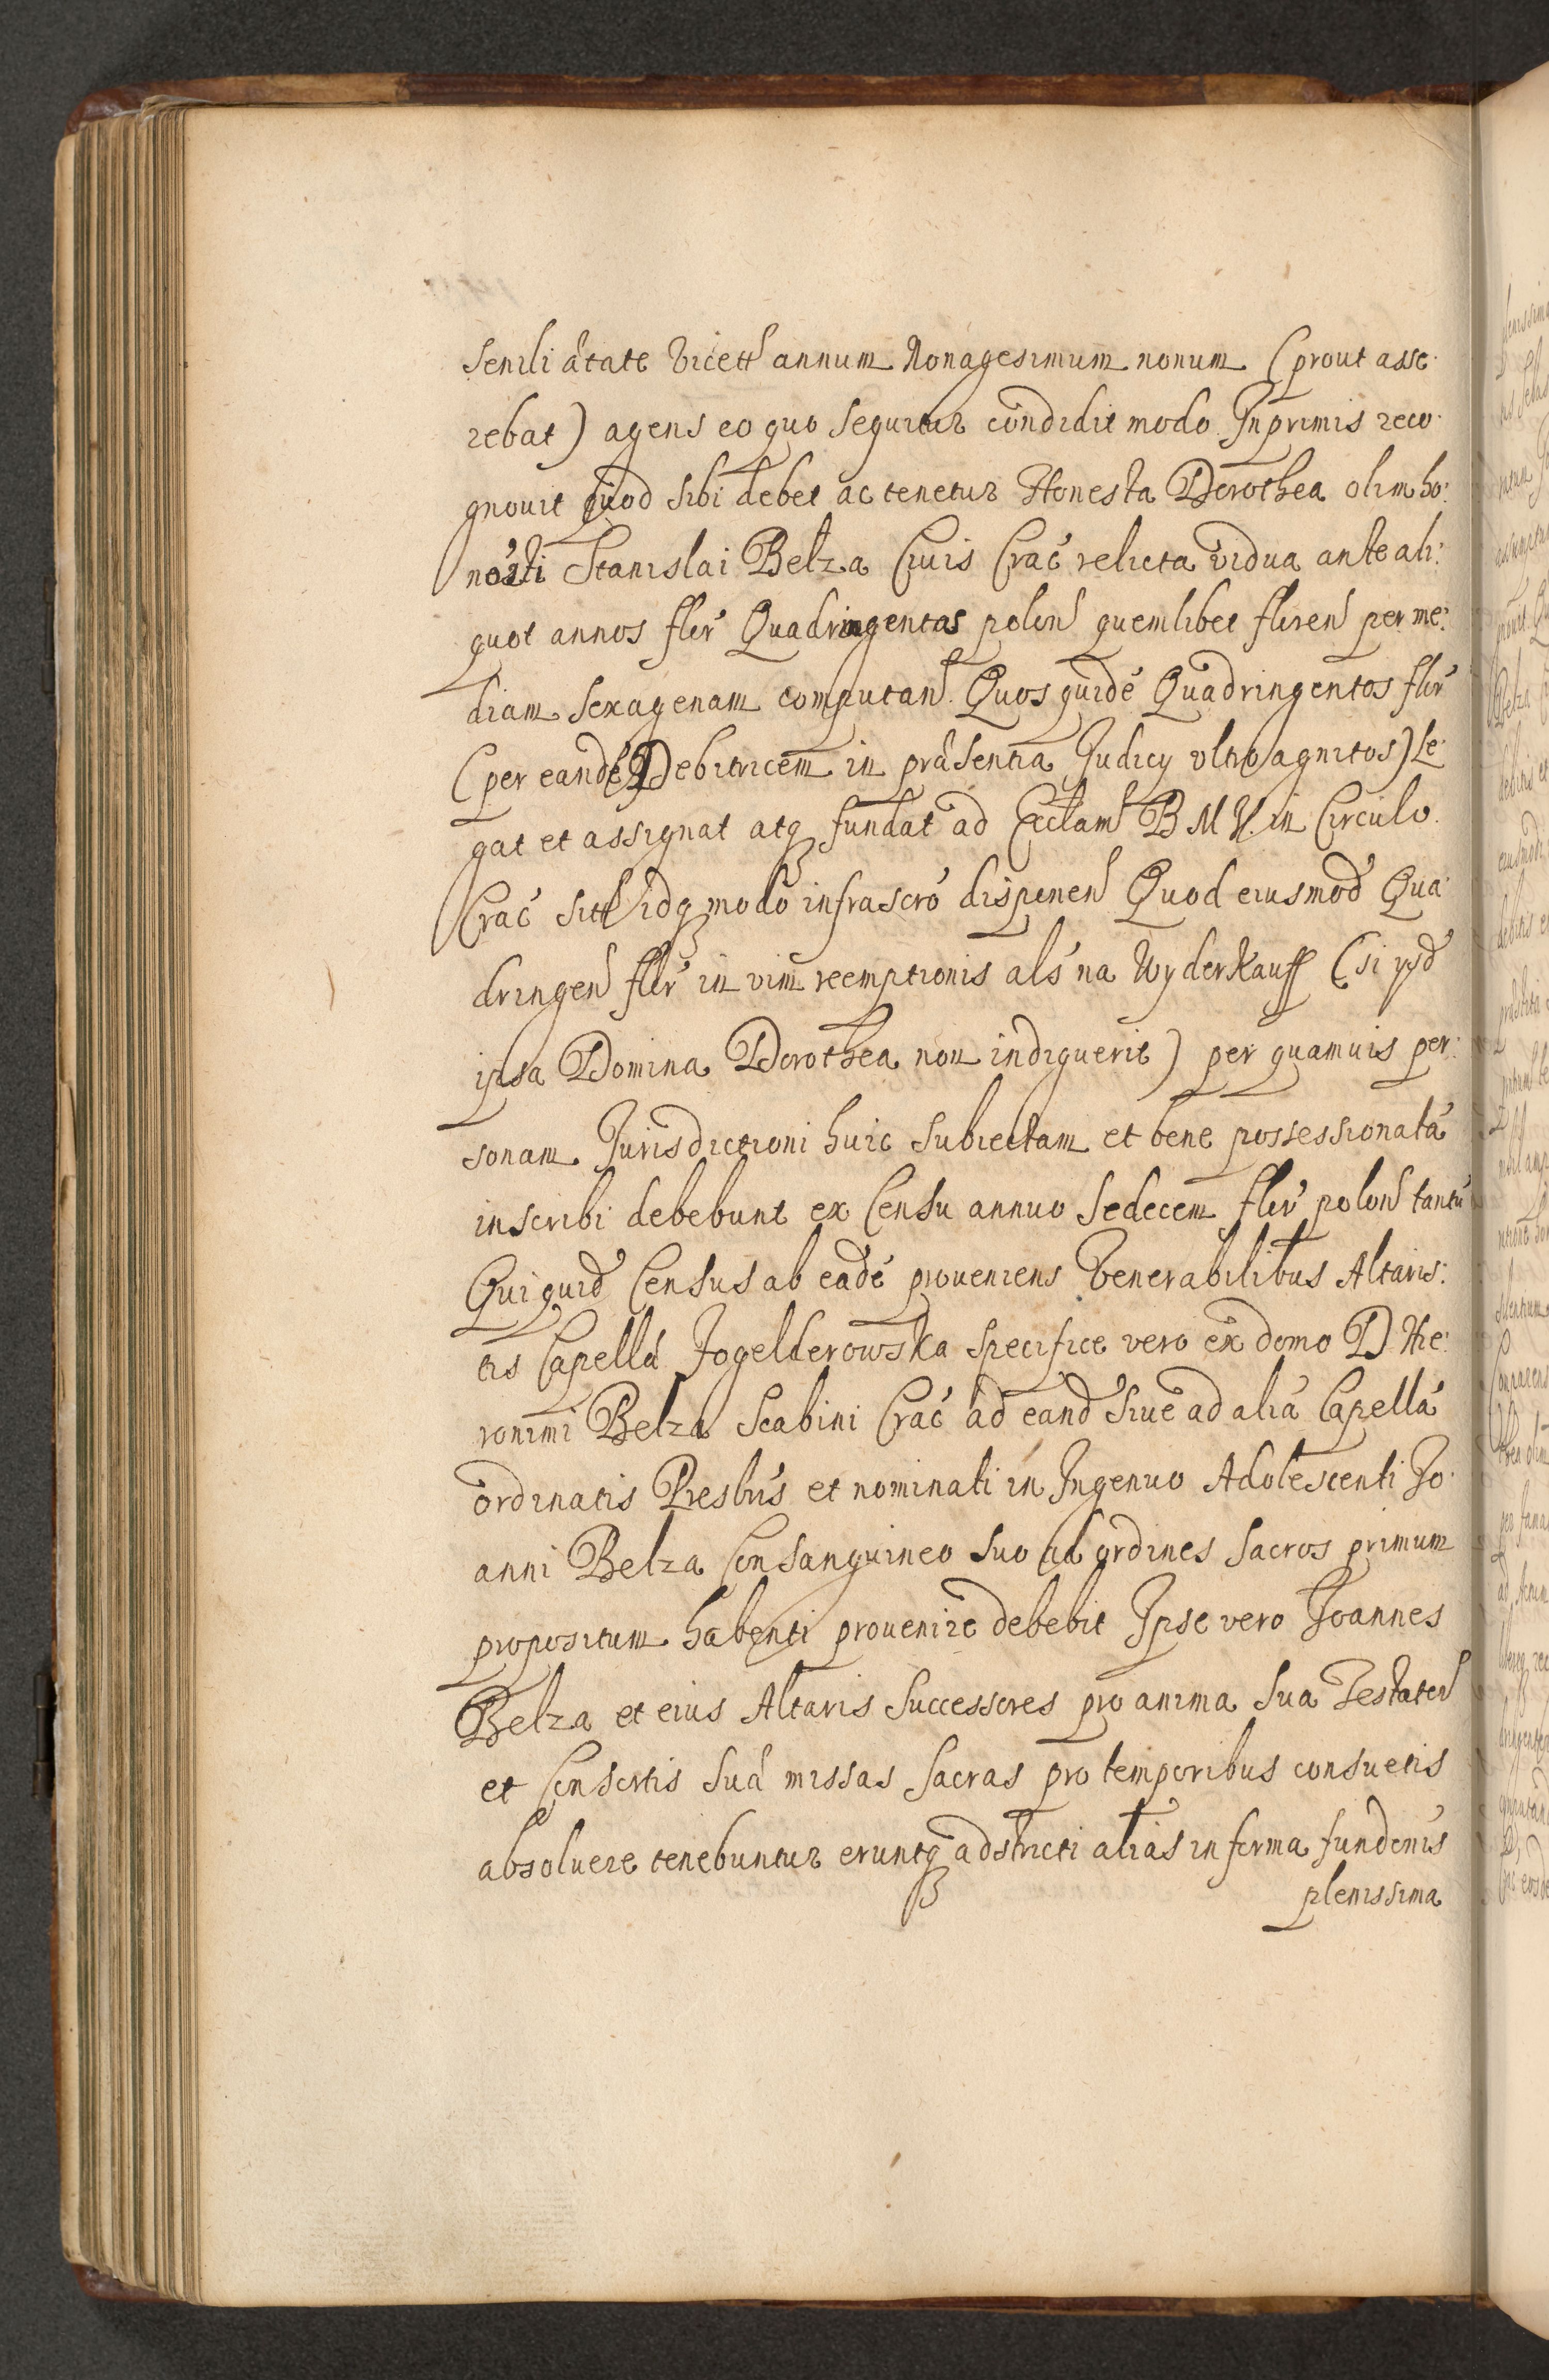 senili ætate vidett annum Nonagesimum nonum (prout asse:
rebat) agens eo quo sequitur condidit modo. Inprimis reco:
gnouit quod sibi debet ac tenetur Honesta Dorothea olim ho:
nesti Stanislai Belza Ciuis Crac̃ relicta vidua ante ali:
quot annos flor̃ Quadringentos polon̄ quemlibet floren̄ per me:
diam sexagenam computan̄. Quos quidẽ Quadringentos flor̃
(per eandẽ Debitricem in præsentia Judicy vltro agnitos) le:
gat et assignat atq fundat ad Ecclam̄ B M V. in Circulo
Crac̃ sitt idq modo infrascrõ disponen̄ Quod eiusmod̃ Qua:
dringen̄ flor̃ in vim reemptionis als̃ na Wyderkauff (si ysd̃
ipsa Domina Dorothea non indiguerit) per quamuis per:
sonam Jurisdictioni huic subiectam et bene possessionatã
inscribi debebunt ex Censu annuo sedecem flor̃ polon̄ tantũ
Qui quid̃ Census ab eadẽ proueniens Venerabilibus Altaris:
tis Capellæ Jogelderowska specifice vero ex domo D. Hie:
ronimi Belza Scabini Crac̃ ad eand̃ siue ad aliã Capellã
ordinatis Presbr̃is et nominati in Ingenuo Adolescenti Jo:
anni Belza Consanguineo suo ad ordines sacros primum
propositum habenti prouenire debebit Ipse vero Joannes
Belza et eius Altaris Successores pro anima sua Testator̄
et Consortis suæ missas sacras pro temporibus consuetis
absoluere tenebuntur eruntq adstricti alias in forma fundõnis
plenissima